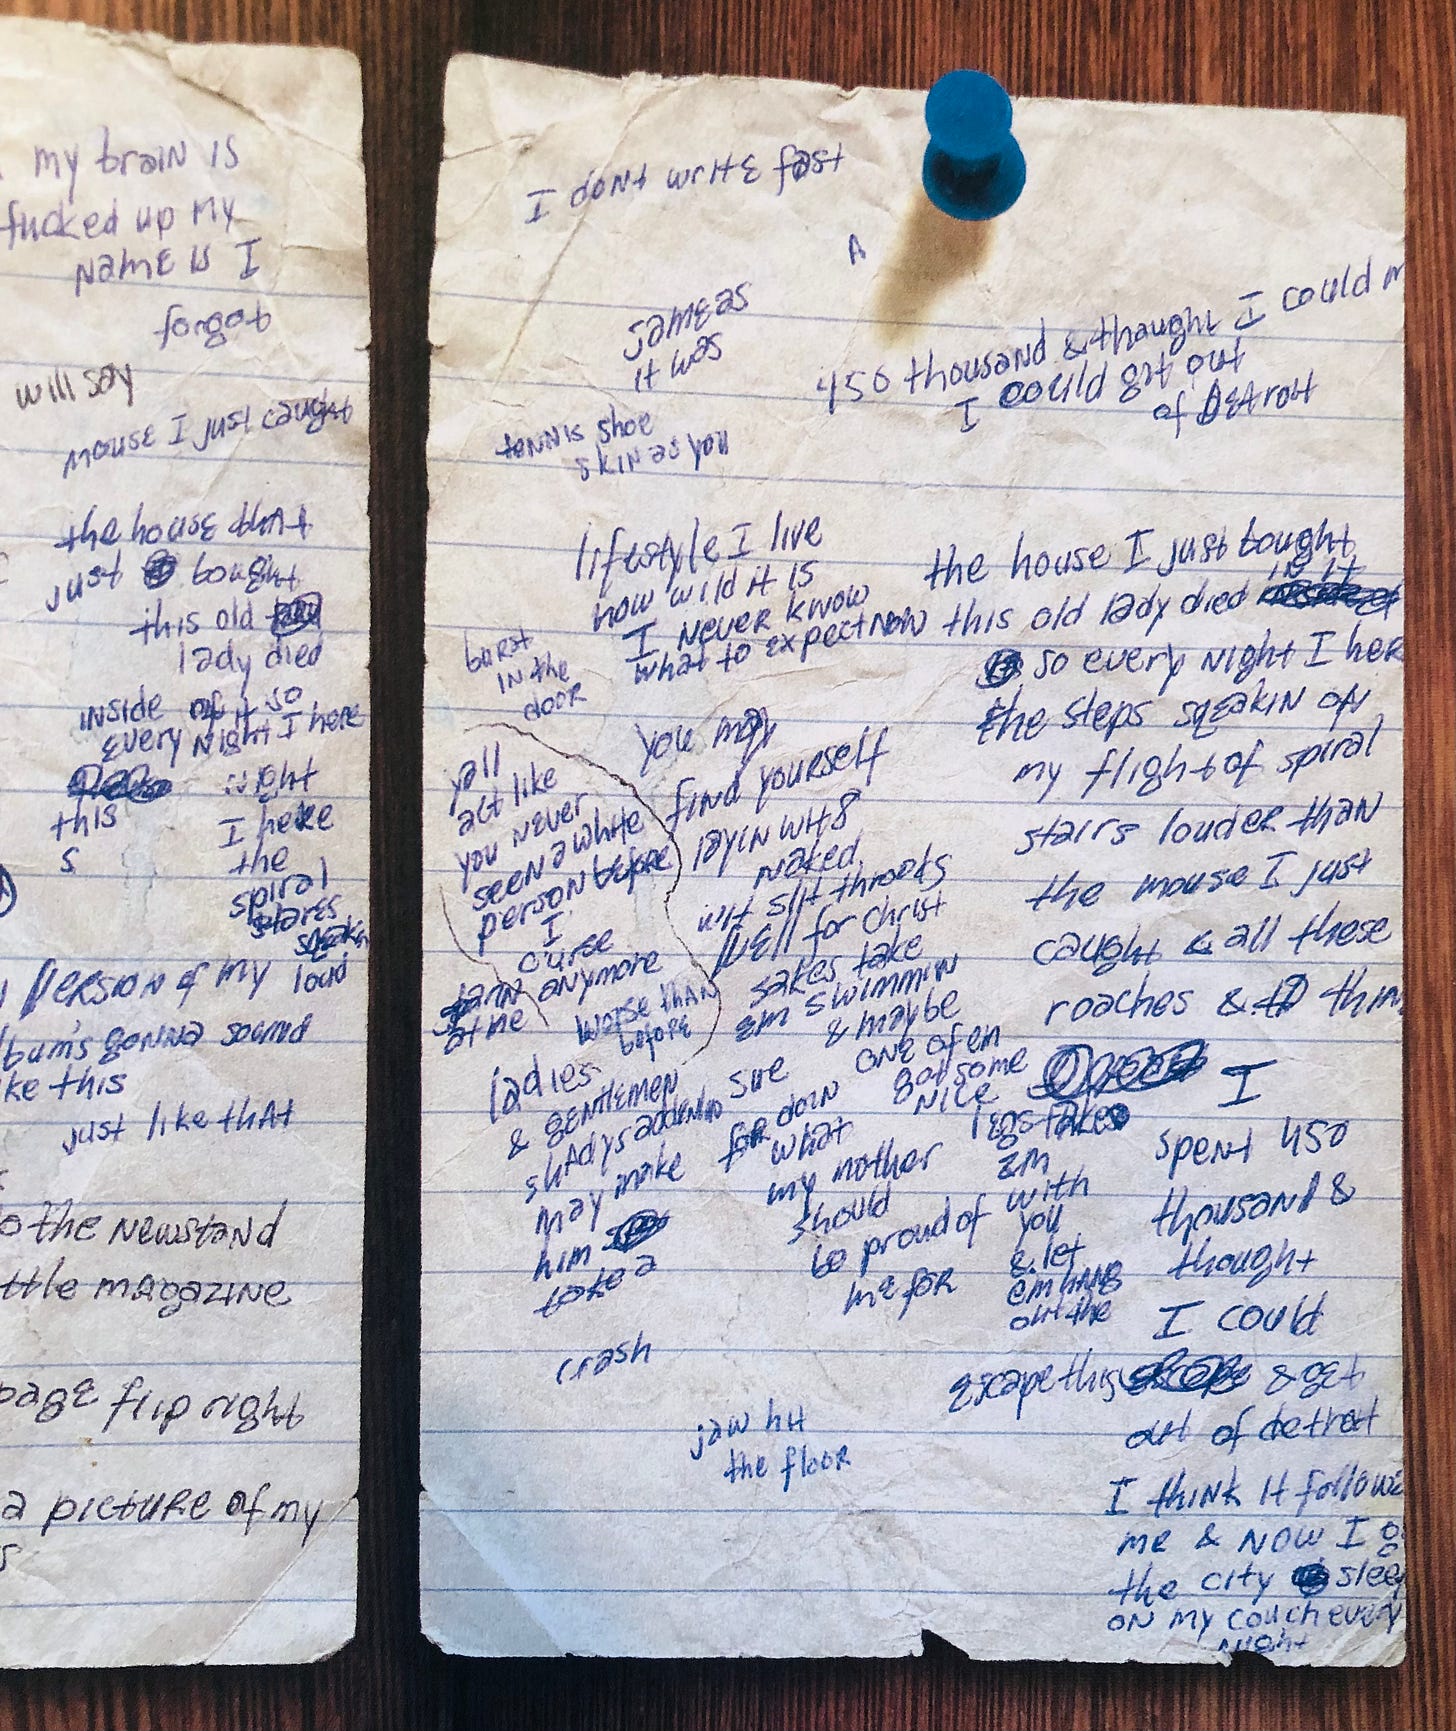 my brain is
fucked up my
name is I
forgot
will say
mouse I just caught
the house that
just bought
this old
lady died
inside of it so
every night I here
night
this
I here
s
the
spiral
stares
speakin
loud
person of my
bum's gonna sound
ke this
just like that
o the newstand
ttle magazine
page flip right
a picture of my
s
I dont write fast
A
same as
it was
450 thousand & thought I could
I could get out
of Detroit
tennis shoe
skin as you
lifestyle I live
how wild it is
I never know
what to expect now
burst
in the
door
yall
act like
you never
seen a white
person before
I
curse
anymore
at me
worse than
before
you may
find yourself
layin with 8
naked
wit slit throats
well for christ
sakes take
em swimmin
& maybe
one of em
got some
nice
legs take
em
with
you
& let
em hang
out the
ladies
& gentlemen
shadys addendn
may make
him
take a
crash
sue
for doin
what
my mother
should
be proud of
me for
jaw hit
the floor
the house I just bought
this old lady died in it
so every night I here
the steps sqeakin on
my flight of spiral
stairs louder than
the mouse I just
caught & all these
roaches & thin
I
spent 450
thousand &
thought
I could
escape this & get
out of detroit
I think it followe
me & now I g
the city slee
on my couch every
night